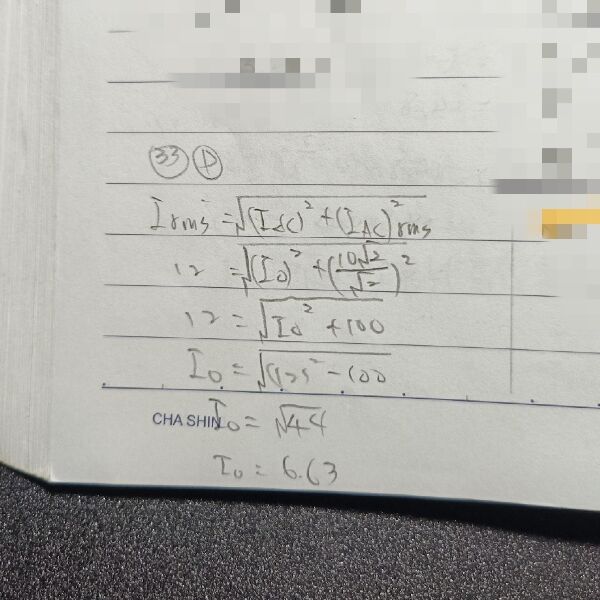 33 D
Irms = √(Idc)² + (IAC)²rms
12 = √(I0)² + (10√2/√2)²
12 = √I0² + 100
I0 = √(12)² - 100
I0 = √44
CHA SHIN
I0 = 6.63